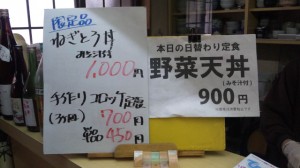 限定品
ねぎとろ丼
みそ汁付
1,000円
手作りコロッケ定食
(3ヶ付) 700円
単品 450円
本日の日替わり定食
野菜天丼
(みそ汁付)
900円